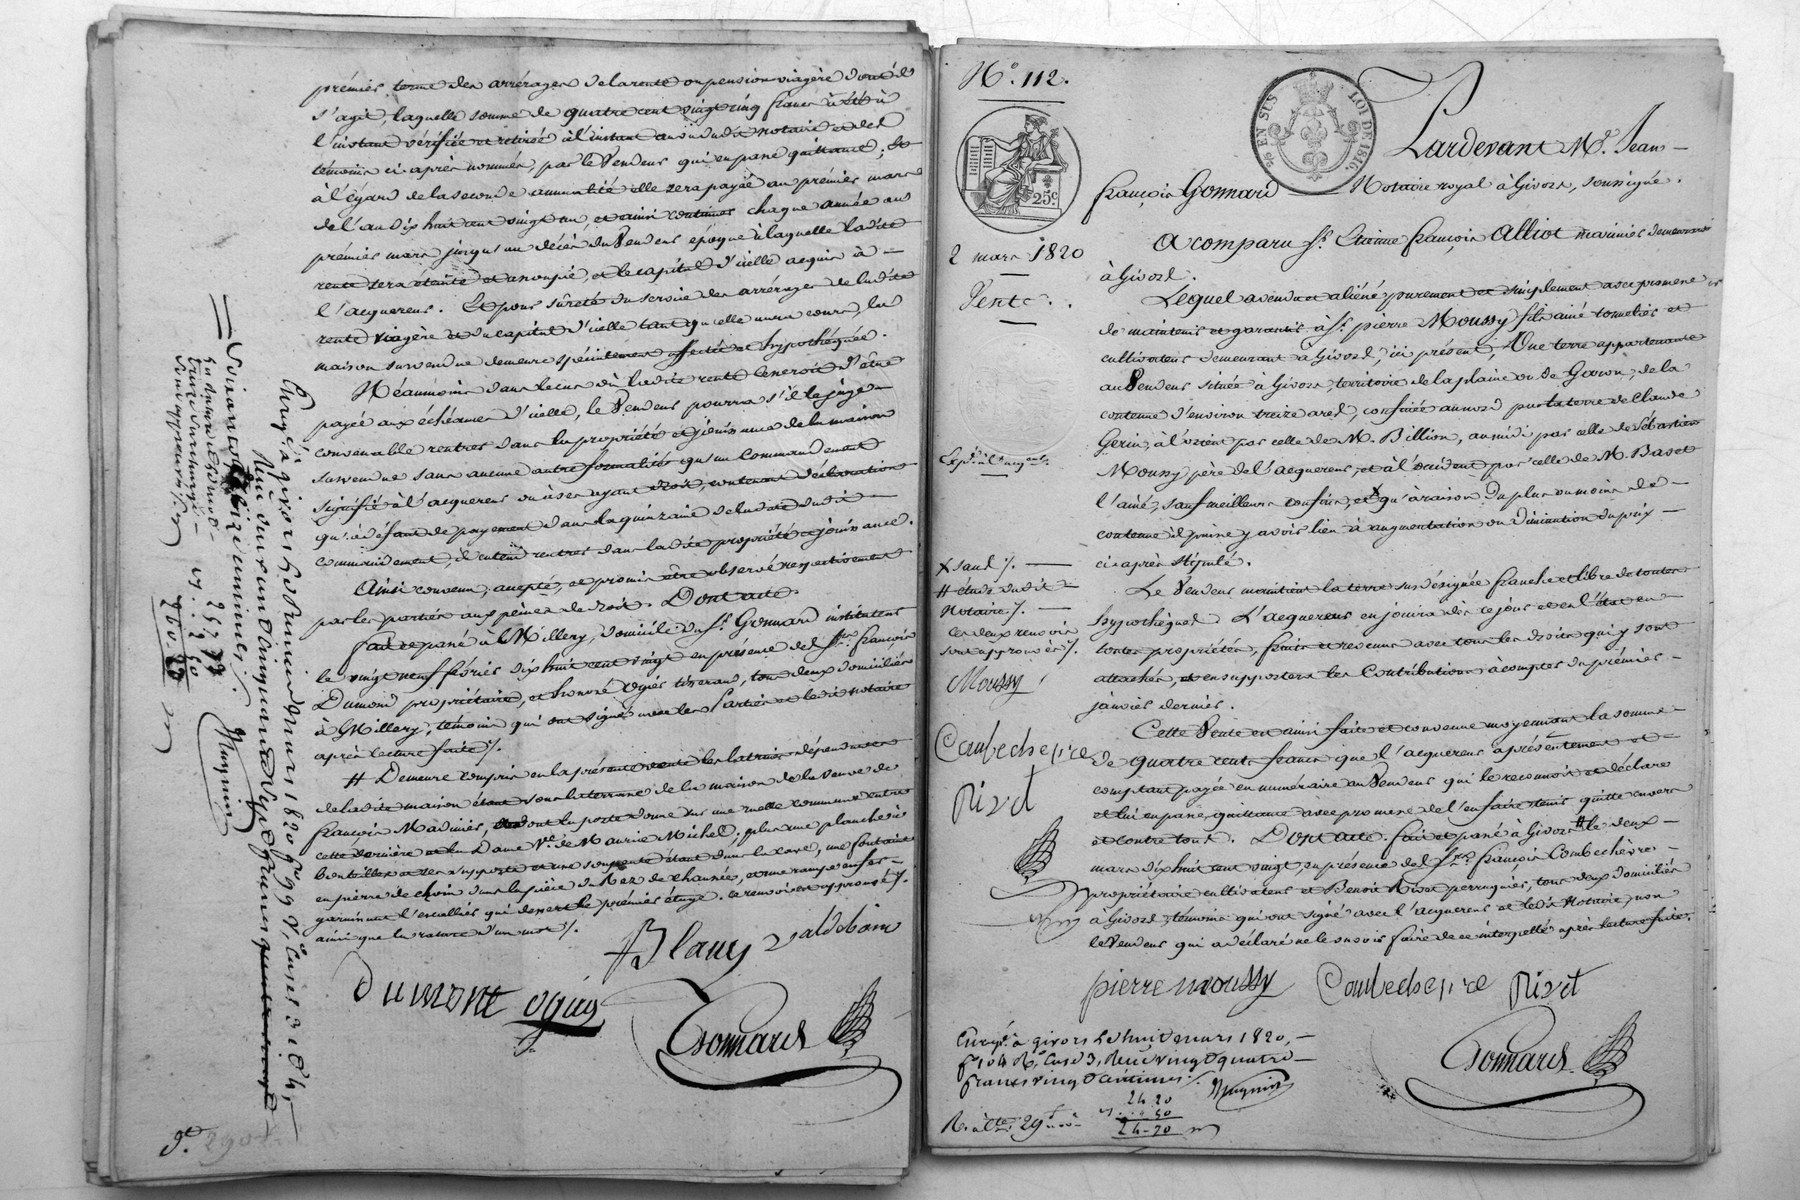 premier terme des arrérages de la rente ou pension viagère dont il
s'agit, laquelle somme de quatre cent vingt cinq francs a été à
l'instant vérifiée et retirée à l'instant au vu dudit notaire et des
témoins ci après nommés, par le Vendeur qui en passe quittance; et
à l'égard de la seconde annuité elle sera payée au premier mars
de l'an dix huit cent vingt un, et ainsi continuer chaque année au
premier mars jusqu'au décès du Vendeur époque à laquelle ladite
rente sera éteinte et amortie, et le capital d'icelle acquis à
l'acquereur. Et pour sûreté du service des arrérages de ladite
rente viagère et du capital d'icelle tant qu'elle aura cours, la
maison survendue demeure spécialement affectée et hypothéquée.
Néanmoins dans le cas où ladite rente cesseroit d'être
payée aux échéances d'icelle, le Vendeur pourra s'il le juge
convenable rentrer dans la propriété et jouissance de la maison
survendue sans aucune autre formalité qu'un Commandement
signifié à l'acquereur ou à ses ayant droit, contenant déclaration
qu'à défaut de payement dans la quinzaine de la date dudit
commandement, il entend rentrer dans ladite propriété et jouissance.
Ainsi convenu, accepté, et promis être observé respectivement
par les parties aux peines de droit. Dont acte.
fait et passé à Millery, domicile du sr. Gonnard instituteur
le vingt neuf février dix huit cent vingt en présence de srs. françois
Dumond propriétaire, et honoré Ogier tisserand, tous deux domiciliés
à Millery, témoins qui ont signé avec les Parties et ledit notaire
après lecture faite ./.
# Demeure compris en la présente vente les latrines dépendantes
de ladite maison étant sous la terrasse de la maison de la veuve de
françois Madinier, dont la porte donne sur une ruelle commune entre
cette dernière et la Dame Ve. de Maurice Michel; plus une planche à
bouteilles et ses supports et une soupente étant dans la cave, une fontaine
en pierre de choin dans la pièce du Rez de chaussée, et une rampe en fer
garnissant l'escallier qui dessert le premier étage. ce renvoi est approuvé ./.
ainsi que la rature d'un mot ./.
Blanc valdeboin
Dumont ogier
Gonnard
Enregé. à givors le premier mars 1820 fo. 99 Vo. Cases 3 et 4,
No. 112.
25 c.
% EN SUS LOI DE 1816
2 mars 1820
Vente.
Pardevant Me. Jean
françois Gonnard Notaire royal à Givors, soussigné.
A comparu sr. Etienne françois Alliot marinier demeurant
à Givors.
Lequel a vendu et aliéné purement et simplement avec promesse
de maintenir et garantir à sr. pierre Moussy fils ainé tonnelier et
cultivateur demeurant à Givors, ici présent, Une terre appartenante
au Vendeur située à Givors, territoire de la plaine ou de Gavon, de la
contenue d'environ treize ares, confinée au nord par la terre de Claude
Gerin, à l'orient par celle de M. Billion, au midi par celle de Sébastien
Moussy père de l'acquereur, et à l'occident par celle de M. Basset
l'ainé, sauf meilleurs confins, et X qu'à raison du plus ou moins de
contenue il puisse y avoir lieu à augmentation ou diminution du prix
ci après stipulé.
Le Vendeur maintient la terre sus désignée franche et libre de toutes
hypothèques. L'acquereur en jouira dès ce jour et en l'état en
toutes propriétés, fruits et revenus avec tous les droits qui y sont
attachés, et en supportera les Contributions à compter du premier
janvier dernier.
Cette Vente est ainsi faite et convenue moyennant la somme
de quatre cents francs que l'acquereur a présentement et
comptant payée en numéraire au Vendeur qui le reconnoit et déclare
et lui en passe quittance avec promesse de l'en faire tenir quitte envers
et contre tous. Dont acte. fait et passé à Givors # le deux
mars dix huit cent vingt, en présence de srs. françois Combechèvre
propriétaire cultivateur et Benoit Rivat perruquier, tous deux domiciliés
à Givors, témoins qui ont signé avec l'acquereur et ledit Notaire, non
le Vendeur qui a déclaré ne le savoir faire de ce interpellé après lecture faite.
X sauf ./.
# étude dudit
Notaire ./.
ces deux renvois
sont approuvés ./.
Moussy
Combechevre
Rivat
pierre moussy Combechevre Rivat
Gonnard
Enregé. à givors le huit mars 1820,
fo. 104 Ro. Case 3, Reçu vingt quatre
francs vingt centimes ./.
24 20
24-70